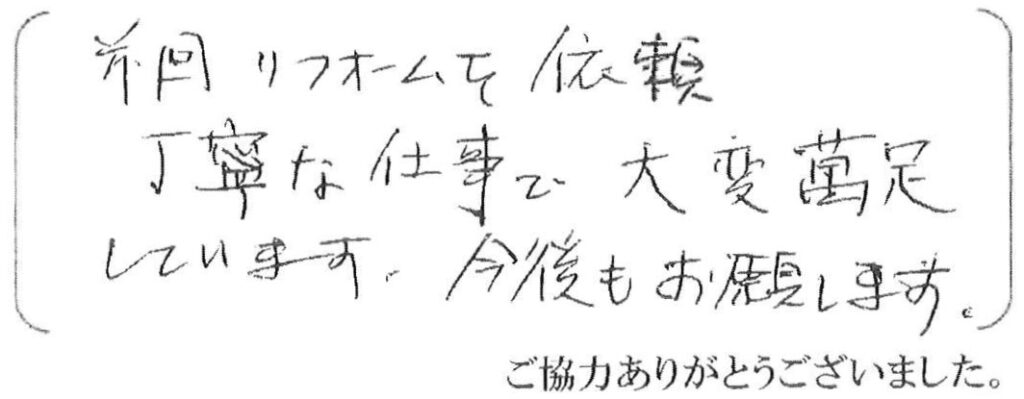 前回リフォームを依頼
丁寧な仕事で大変萬足
しています。今後もお願いします。
ご協力ありがとうございました。